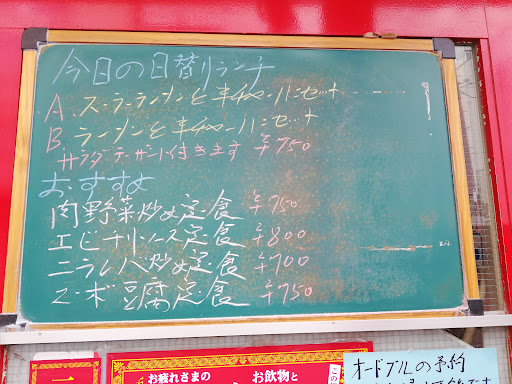 今日の日替りランチ
A. スーラーランメンと半チャーハンセット
B. ラーメンと半チャーハンセット
サラダデザート付きます ¥750
おすすめ
肉野菜炒め定食 ¥750
エビチリソース定食 ¥800
ニラレバ炒め定食 ¥700
マーボ豆腐定食 ¥750
お疲れさまの
お飲物と
オードブルの予約